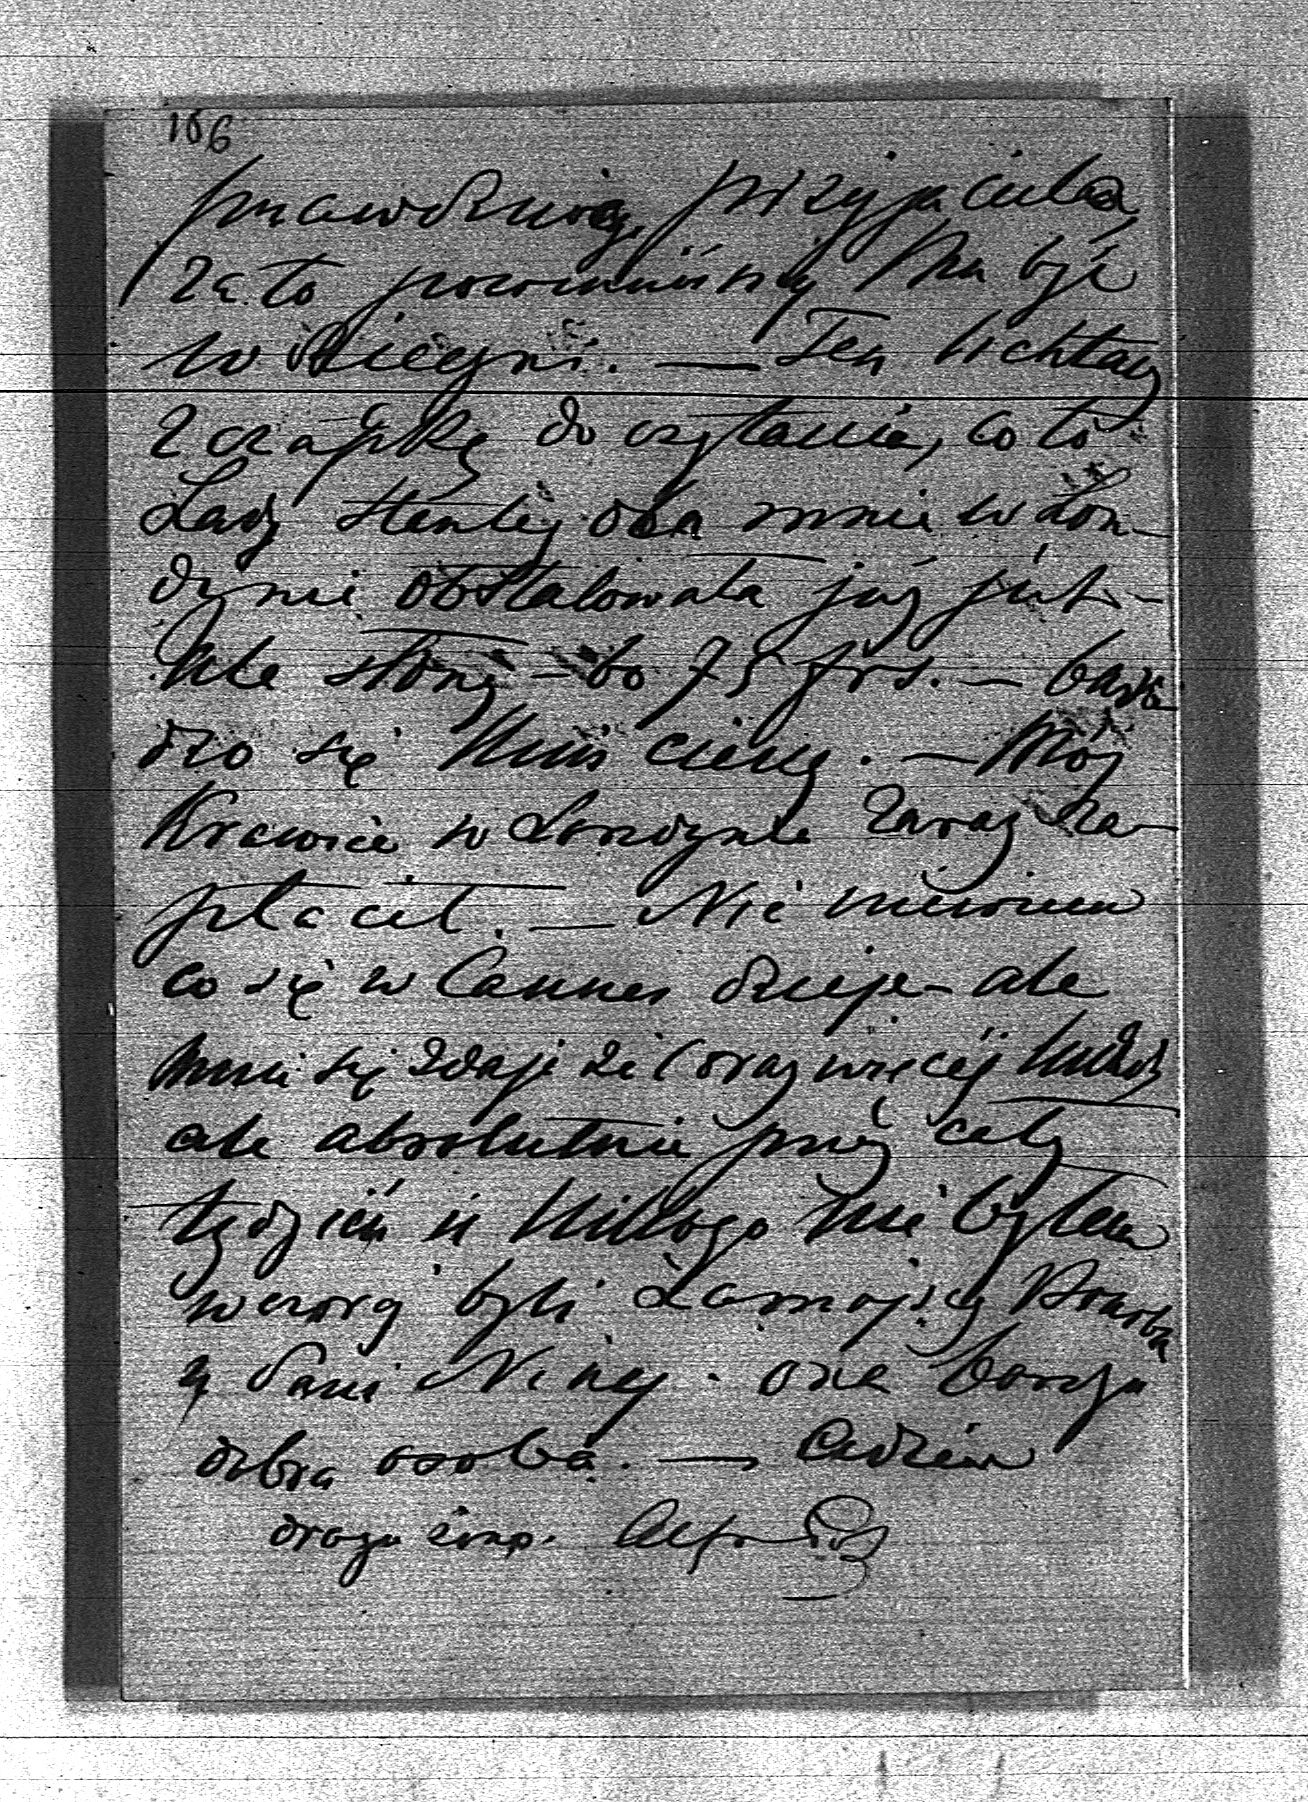 106
prawdziwą przyjaciela
za to powinniśmy Mu być
wdzięczni. — Ten lichtarz
z czapką do czytania, co to
Lady Stenley dla mnie w Lon-
dynie obstalowała już jest
Ale słony — bo 75 frs. — bar
dzo się nim cieszę. — Mój
Krawiec w Londynie zaraz za-
płacił. — Nie wiem
co się w Cannes dzieje — ale
mnie się zdaje że coraz więcej ludzi
ale absolutnie przez cały
tydzień u Nikogo nie byłem
wczoraj byli Zamojscy
z Pani Niną. ona bardzo
dobra osoba. —
droga żono. Alfred